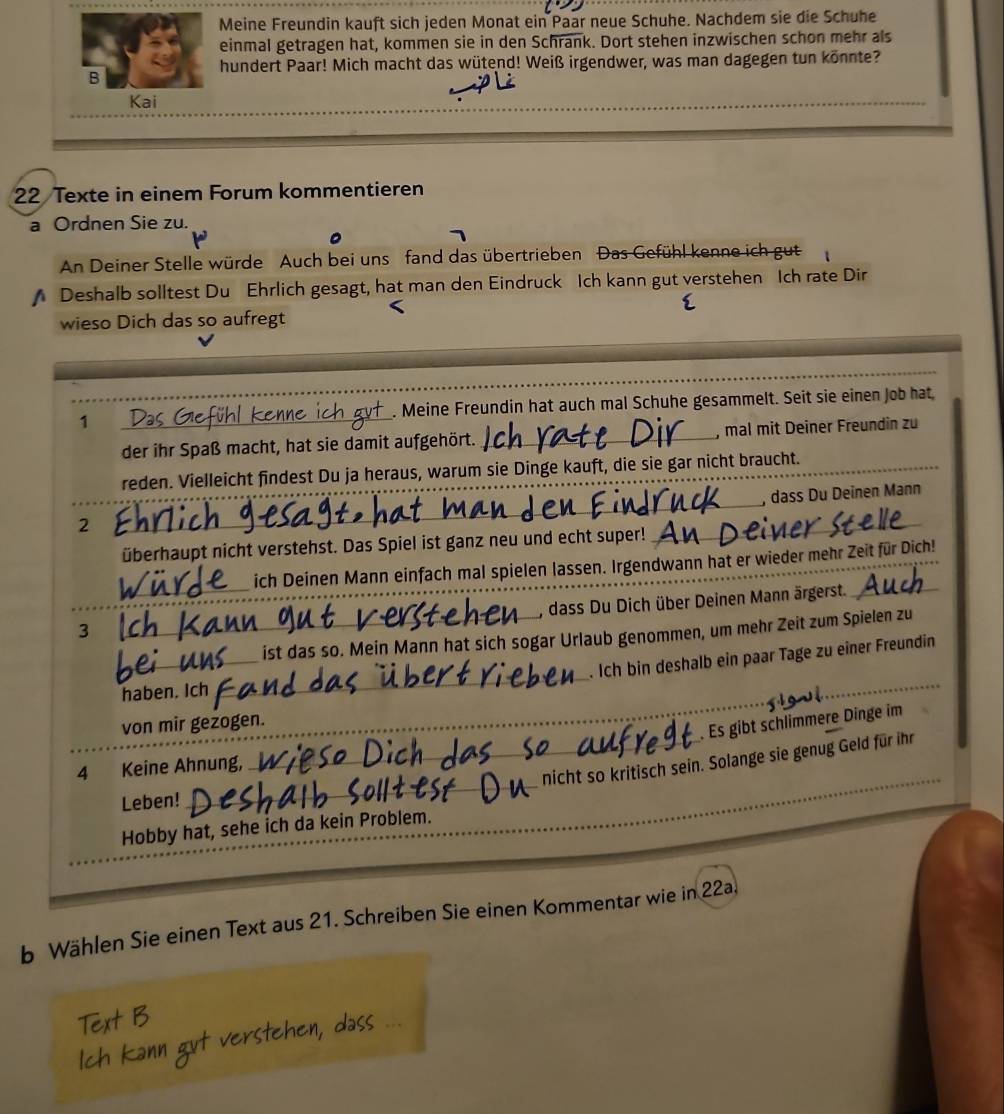 Meine Freundin kauft sich jeden Monat ein Paar neue Schuhe. Nachdem sie die Schuhe
einmal getragen hat, kommen sie in den Schrank. Dort stehen inzwischen schon mehr als
hundert Paar! Mich macht das wütend! Weiß irgendwer, was man dagegen tun könnte?
B
غاضب
Kai
22 Texte in einem Forum kommentieren
a Ordnen Sie zu.
٣ ٥ ٦
An Deiner Stelle würde Auch bei uns fand das übertrieben Das Gefühl kenne ich gut
١
٨ Deshalb solltest Du Ehrlich gesagt, hat man den Eindruck Ich kann gut verstehen Ich rate Dir
٤
wieso Dich das so aufregt
٧
1 Das Gefühl kenne ich gut. Meine Freundin hat auch mal Schuhe gesammelt. Seit sie einen Job hat,
der ihr Spaß macht, hat sie damit aufgehört. Ich rate Dir, mal mit Deiner Freundin zu
reden. Vielleicht findest Du ja heraus, warum sie Dinge kauft, die sie gar nicht braucht.
2 Ehrlich gesagt, hat man den Eindruck, dass Du Deinen Mann
überhaupt nicht verstehst. Das Spiel ist ganz neu und echt super! An Deiner Stelle
Würde ich Deinen Mann einfach mal spielen lassen. Irgendwann hat er wieder mehr Zeit für Dich!
3 Ich Kann gut verstehen, dass Du Dich über Deinen Mann ärgerst. Auch
bei uns ist das so. Mein Mann hat sich sogar Urlaub genommen, um mehr Zeit zum Spielen zu
haben. Ich Fand das übertrieben. Ich bin deshalb ein paar Tage zu einer Freundin
von mir gezogen.
أسوأ
4 Keine Ahnung, Wieso Dich das so aufregt. Es gibt schlimmere Dinge im
Leben! Deshalb Solltest Du nicht so kritisch sein. Solange sie genug Geld für ihr
Hobby hat, sehe ich da kein Problem.
b Wählen Sie einen Text aus 21. Schreiben Sie einen Kommentar wie in 22a.
Text B
Ich kann gut verstehen, dass ...